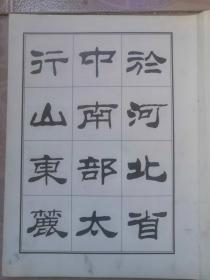 於河北省
中南部太
行山東麓